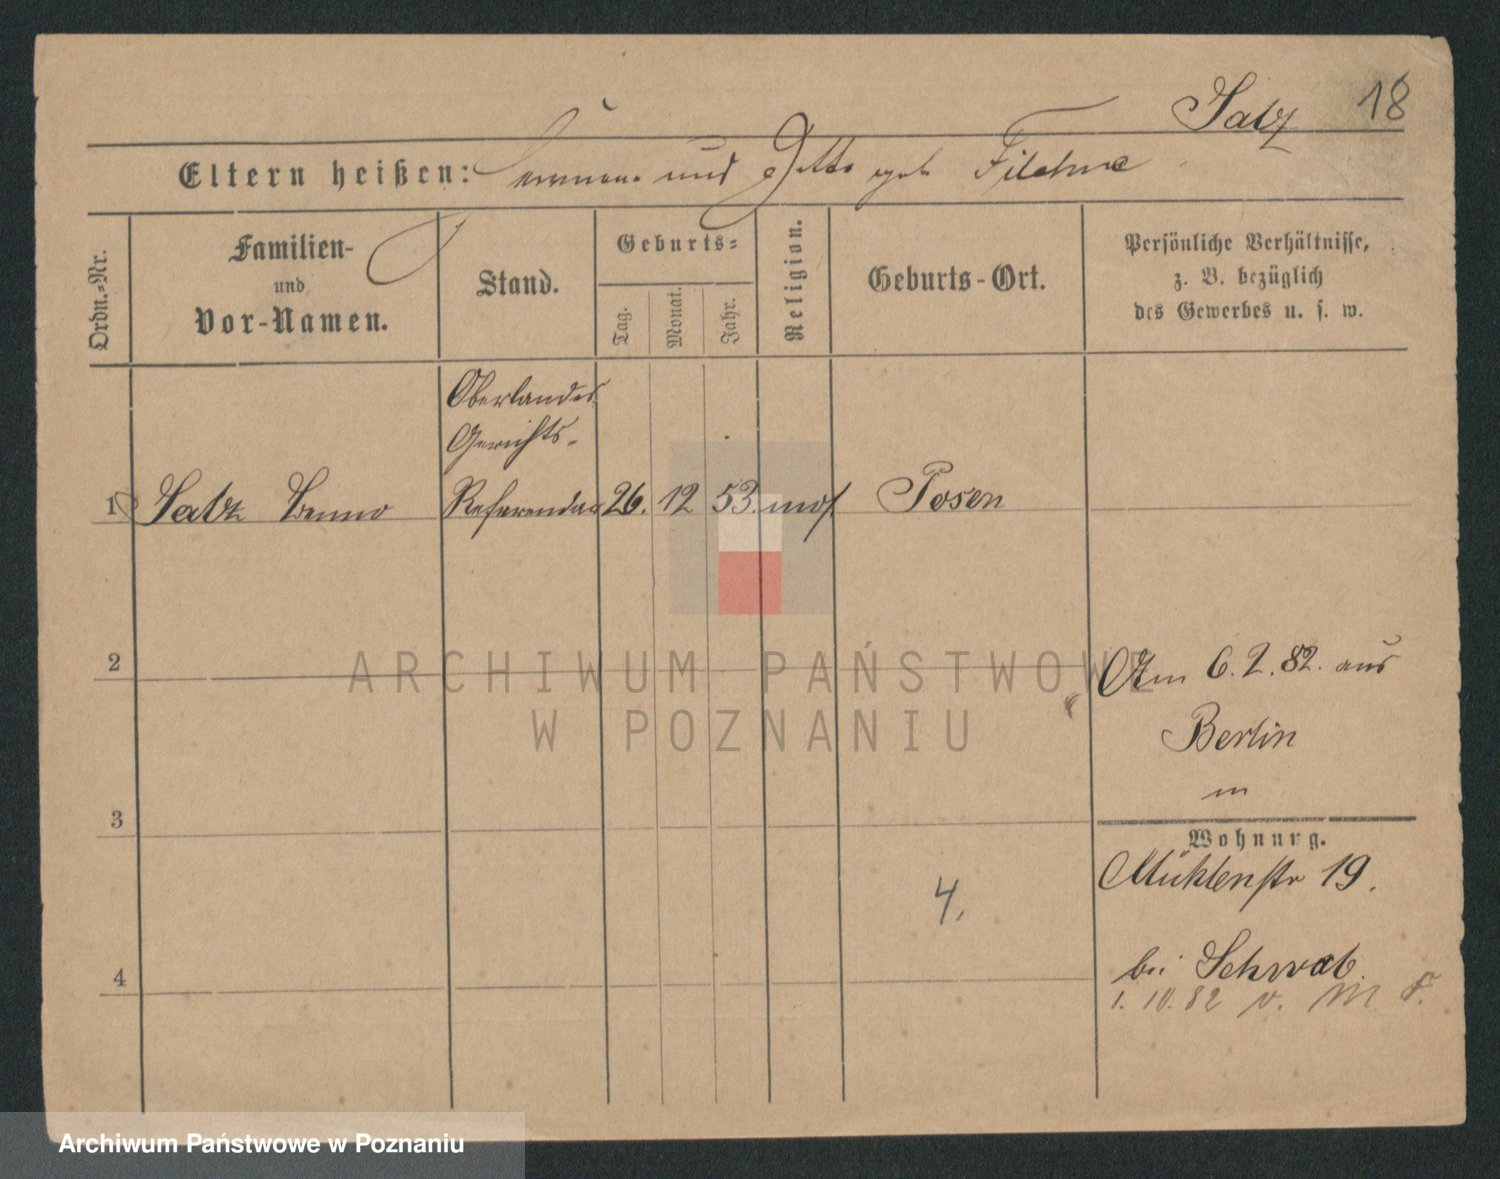 Satz 18
Eltern heißen: und geb
Ordn.-Nr.
Familien-
und
Vor-Namen.
Stand.
Geburts-
Tag.
Monat.
Jahr.
Religion.
Geburts-Ort.
Persönliche Verhältnisse,
z. B. bezüglich
des Gewerbes u. s. w.
Oberlandes
Gerichts-
1 Satz Benno Referendar 26. 12 53. mos. Posen
2
Am 6. 2. 82. aus
Berlin
3
Wohnung.
Mühlenstr 19.
4.
bei Schwab.
4
1. 10. 82 v. M
ARCHIWUM PAŃSTWOWE
W POZNANIU
Archiwum Państwowe w Poznaniu